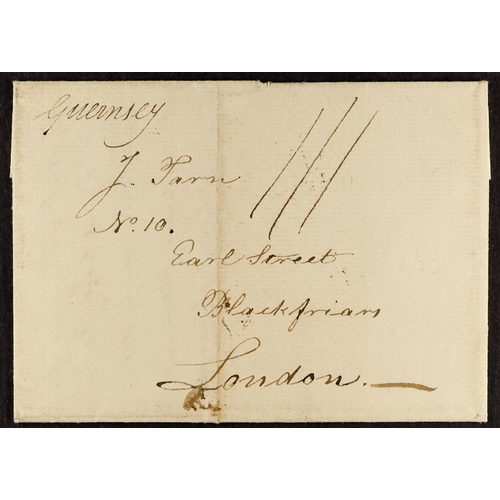 Guernsey
J. Tarn
No. 10.
Earl Street
Blackfriars
London.